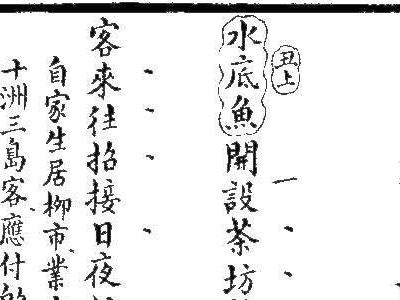 丑上
水底魚開設茶坊
客來往招接日夜
自家生居柳市業
十洲三島客應付